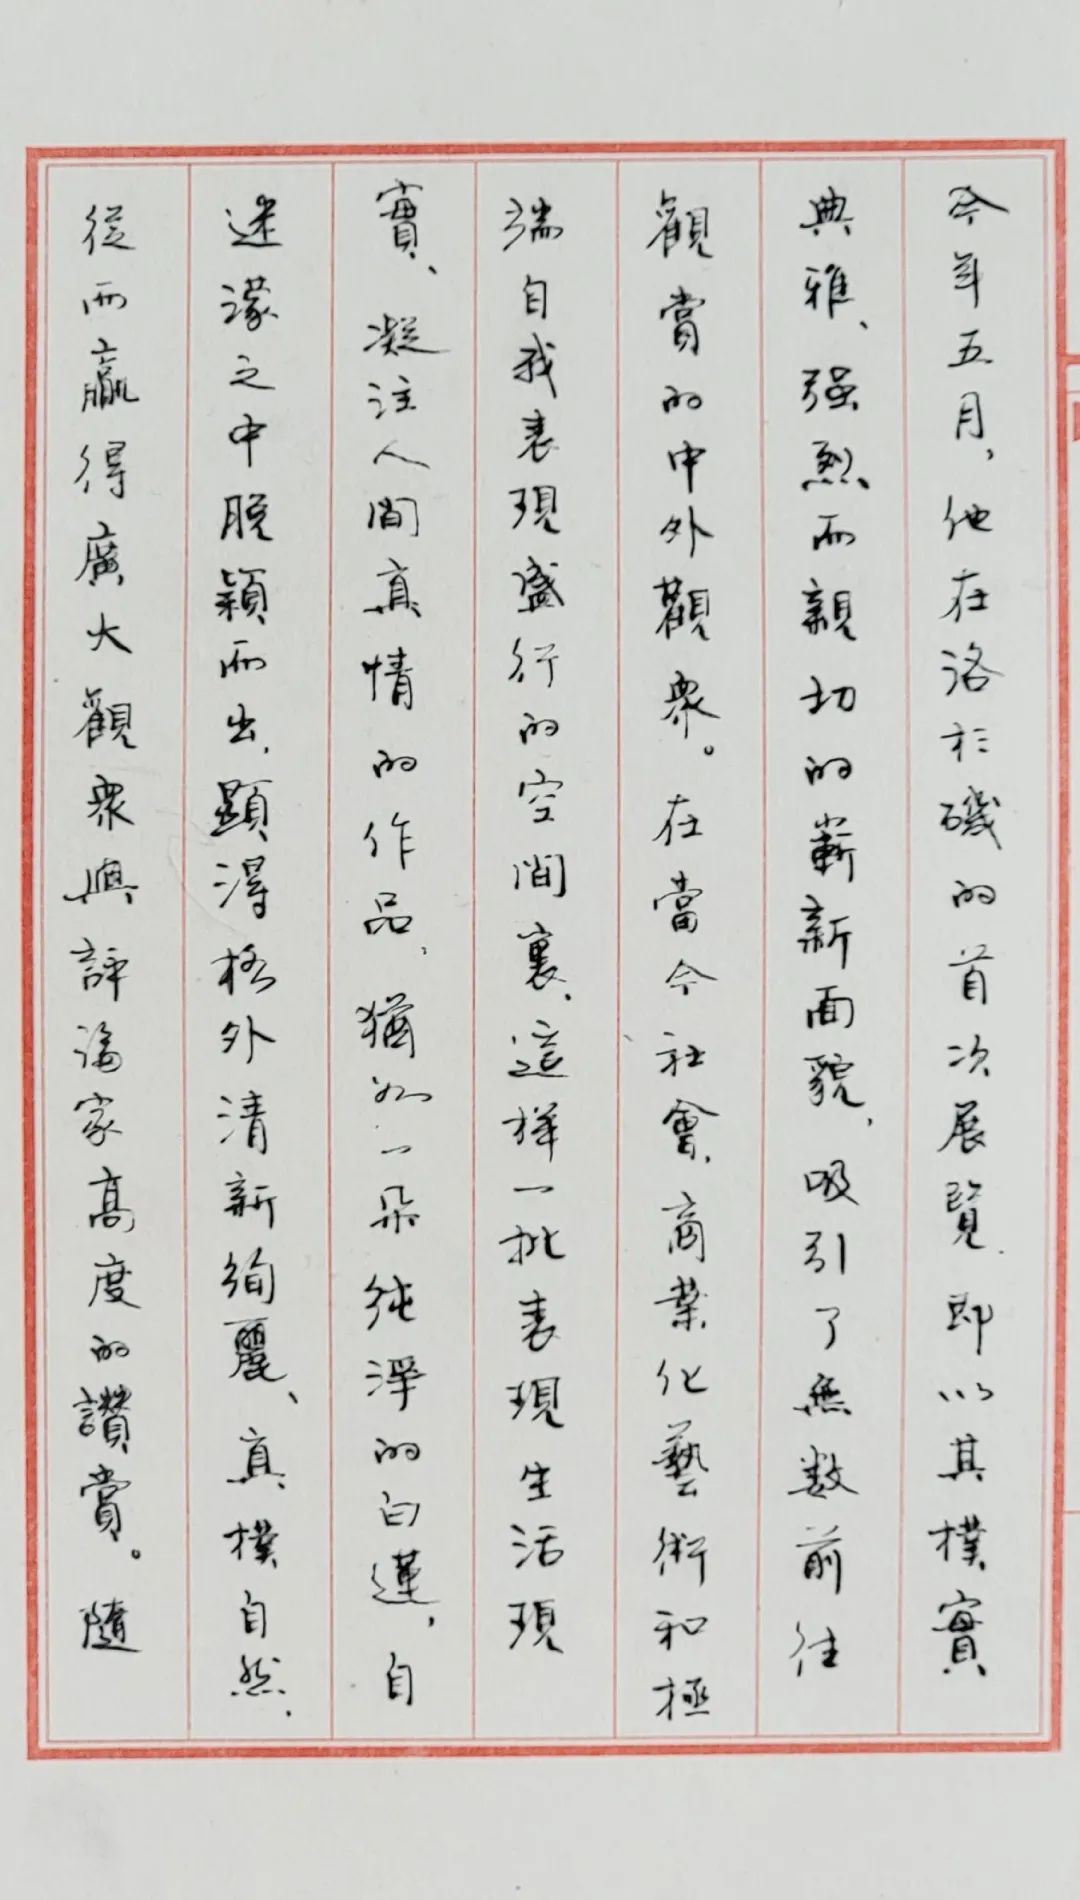 今年五月，他在洛杉磯的首次展覽，即以其樸實
典雅、强烈而親切的嶄新面貌，吸引了無数前往
觀賞的中外觀衆。在當今社會，商業化藝術和極
端自我表現盛行的空間裏，這樣一批表現生活現
實、凝注人間真情的作品，猶如一朵純淨的白蓮，自
迷濛之中脫穎而出，顯得格外清新絢麗、真樸自然，
從而贏得廣大觀衆與評論家高度的讚賞。隨